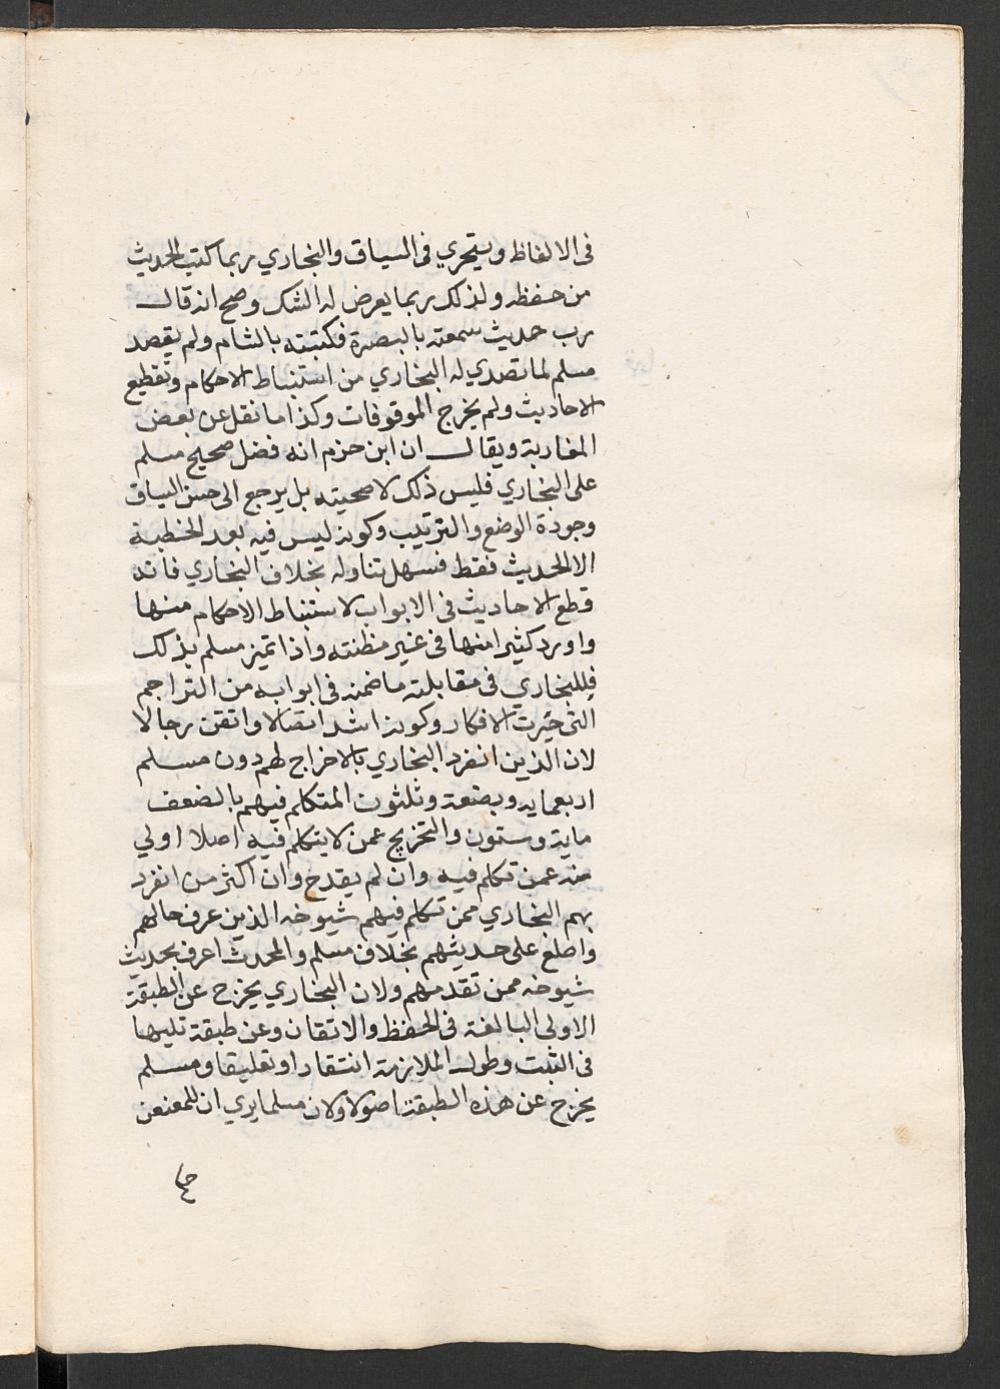 فى الالفاظ ويتحري فى السياق والبخاري ربما كتب الحديث
من حفظه ولذلك ربما يعرض له الشك وصح انه قال
رب حديث سمعته بالبصرة فكتبته بالشام ولم يقصد
مسلم لما تصدي له البخاري من استنباط الاحكام وتقطيع
الاحاديث ولم يخرج الموقوفات وكذا ما نقل عن بعض
المغاربة ويقال ان ابن حزم انه فضل صحيح مسلم
على البخاري فليس ذلك لاصحيته بل يرجع الى حسن السياق
وجودة الوضع والترتيب وكونه ليس فيه بعد الخطبة
الا الحديث فقط فسهل تناوله بخلاف البخاري فانه
قطع الاحاديث فى الابواب لاستنباط الاحكام منها
واورد كثيرا منها فى غير مظنته واذا تميز مسلم بذلك
فللبخاري فى مقابلته ما ضمنه فى ابوابه من التراجم
التى حيرت الافكار وكونه اشد اتصالا واتقن رجالا
لان الذين انفرد البخاري بالاخراج لهم دون مسلم
اربعمايه وبضعة وثلثون المتكلم فيهم بالضعف
ماية وستون والتخريج عمن لا يتكلم فيه اصلا اولي
منه عمن تكلم فيه وان لم يقدح وان اكثر من انفرد
بهم البخاري ممن تكلم فيهم شيوخه الذين عرف حالهم
واطلع على حديثهم بخلاف مسلم والمحدث اعرف بحديث
شيوخه ممن تقدمهم ولان البخاري يخرج عن الطبقة
الاولى البالغة فى الحفظ والاتقان وعن طبقة تليها
فى الثبت وطول الملازمة انتقادا وتعليقا ومسلم
يخرج عن هذه الطبقة اصولا ولان مسلما يري ان للمعنعن